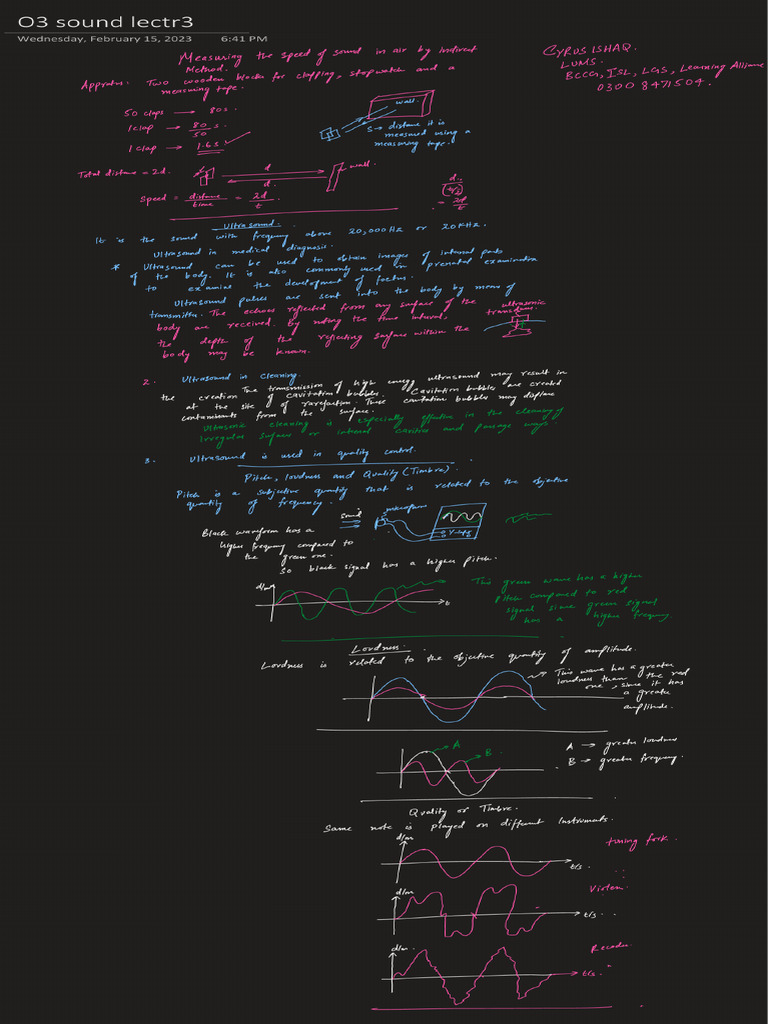 O3 sound lectr3
Wednesday, February 15, 2023 6:41 PM
Measuring the speed of sound in air by Indirect
Method.
CYRUS ISHAQ.
LUMS.
BCCG, ISL, LGS, Learning Alliance
0300 8471504.
Appratus: Two wooden blocks for clapping, stopwatch and a
measuring tape.
50 claps → 80s.
1 clap → 80/50 s.
1 clap → 1.6s
wall.
S → distance it is
measured using a
measuring tape.
Total distance = 2d.
d
d.
wall.
Speed = distance/time = 2d/t
d/(t/2)
= 2d/t
Ultrasound.
It is the sound with frequency above 20,000Hz or 20KHz.
Ultrasound in medical diagnosis.
* Ultrasound can be used to obtain images of internal parts
of the body. It is also commonly used in prenatal examination
to examine the development of foetus.
Ultrasound pulses are sent into the body by means of
transmitter. The echoes reflected from any surface of the
body are received. By noting the time interval,
the depth of the reflecting surface within the
body may be known.
ultrasonic
2. Ultrasound in Cleaning.
The transmission of high energy ultrasound may result in
the creation of cavitation bubbles. Cavitation bubbles are created
at the site of rarefaction. These cavitation bubbles may displace
contaminants from the surface.
Ultrasonic cleaning is especially effective in the cleaning of
irregular surface or internal cavities and passage ways.
3. Ultrasound is used in quality control.
Pitch, loudness and Quality (Timbre).
Pitch is a subjective quantity that is related to the objective
quantity of frequency.
sound
microphone
Y-i/p
Black waveform has a
higher frequency compared to
the green one.
So black signal has a higher pitch.
d/m
t
This green wave has a higher
pitch compared to red
signal since green signal
has a higher frequency
Loudness.
Loudness is related to the objective quantity of amplitude.
This wave has a greater
loudness than the red
one, since it has
a greater
amplitude.
A
B
A → greater loudness
B → greater frequency.
Quality or Timbre.
Same note is played on different Instruments.
d/m
t/s
tuning fork.
d/m
t/s.
Violin.
d/m.
t/s.